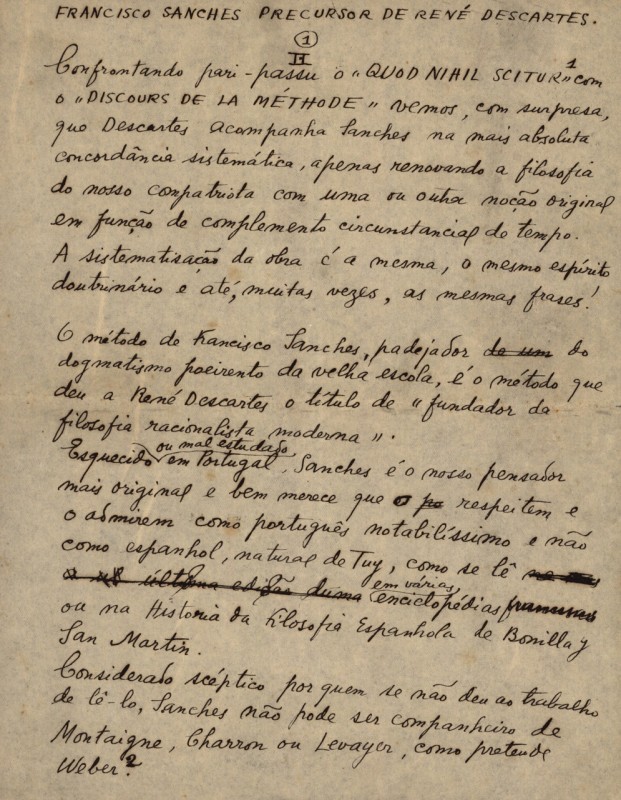 FRANCISCO SANCHES PRECURSOR DE RENÉ DESCARTES.
1
II
Confrontando pari-passu o "QUOD NIHIL SCITUR"1 com
o "DISCOURS DE LA MÉTHODE" vemos, com surpresa,
que Descartes acompanha Sanches na mais absoluta
concordância sistemática, apenas renovando a filosofia
do nosso compatriota com uma ou outra noção original
em função de complemento circunstancial de tempo.
A sistematisação da obra é a mesma, o mesmo espírito
doutrinário e até, muitas vezes, as mesmas frases!
O método de Francisco Sanches, padejador de um do
dogmatismo poeirento da velha escola, é o método que
deu a René Descartes o título de "fundador da
filosofia racionalista moderna".
ou mal estudado
Esquecido em Portugal, Sanches é o nosso pensador
mais original e bem merece que o respeitem e
o admirem como português notabilíssimo e não
como espanhol, natural de Tuy, como se lê
em várias
última edição duma enciclopédias
ou na Historia da Filosofia Espanhola de Bonilla y
San Martin.
Considerado scéptico por quem se não deu ao trabalho
de lê-lo, Sanches não pode ser companheiro de
Montaigne, Charron ou Levayer, como pretende
Weber.2